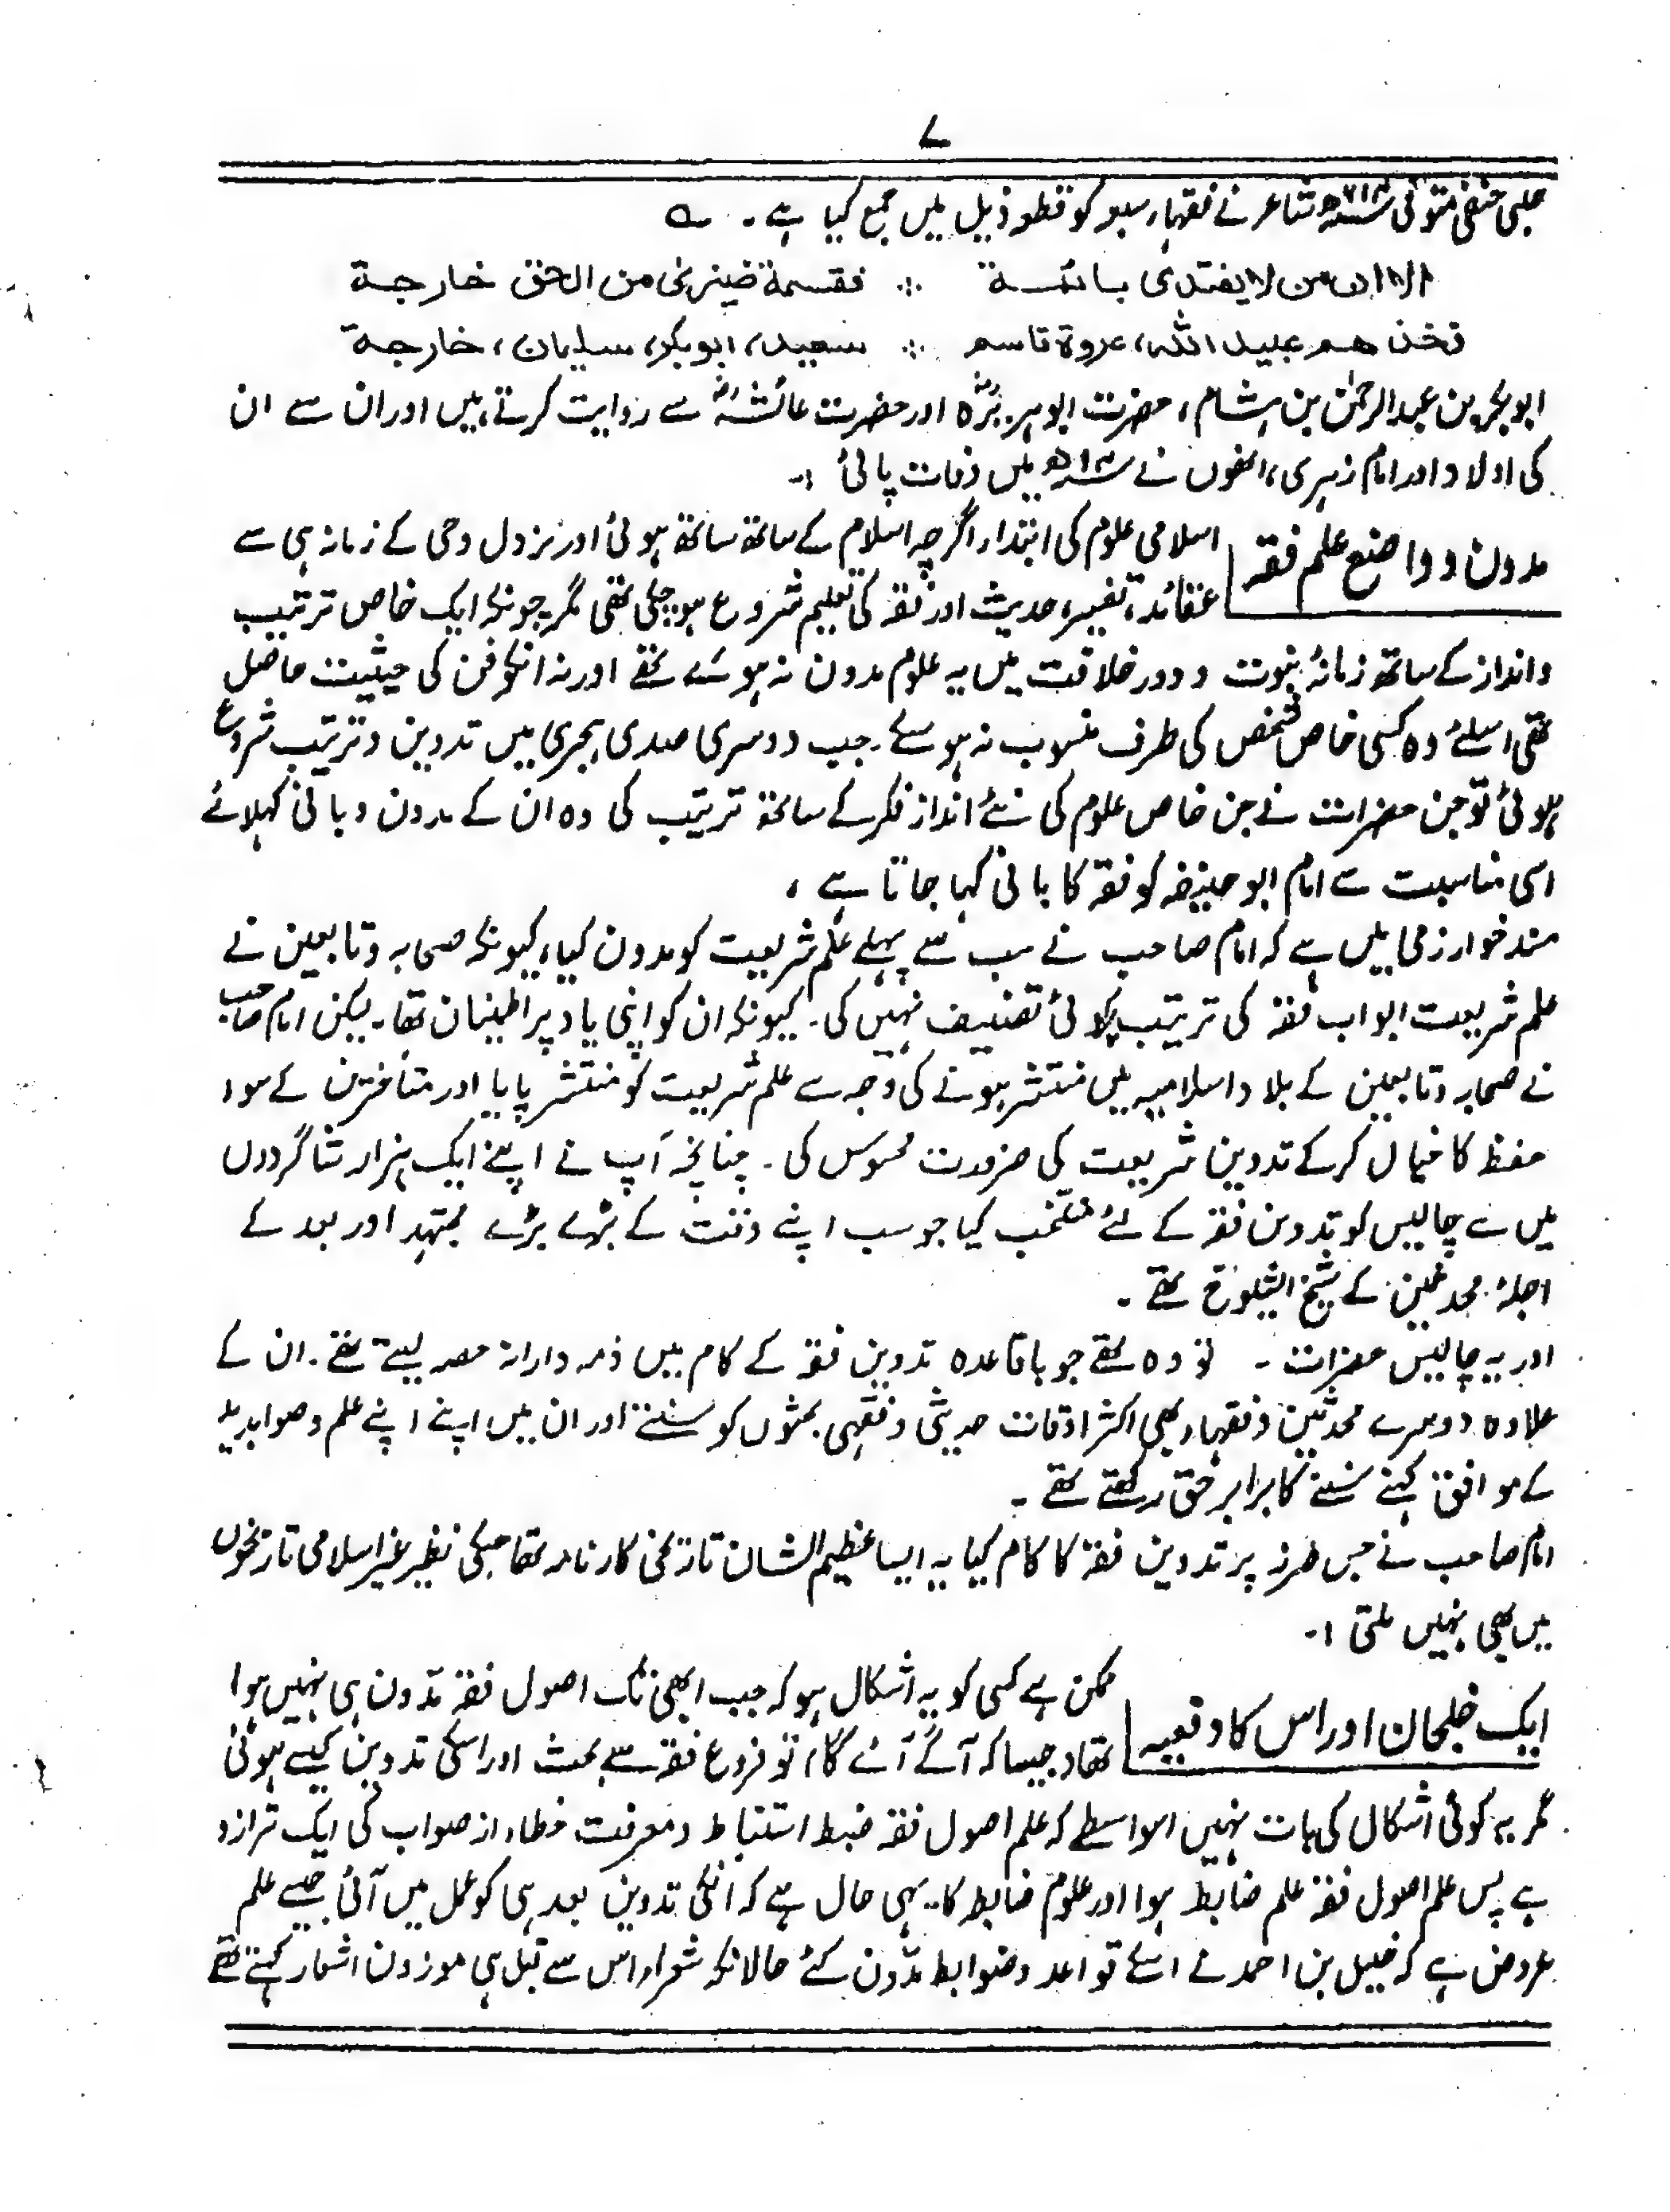 ۷
حلبی حنفی متوفی ۶۱۴ھ شاعر نے فقہاء سبعہ کو قطعہ ذیل میں جمع کیا ہے۔ ے
الا ان من لا یقتدی بائمۃ ∴ فقسمۃ ضیزی من الحق خارجۃ
فخذ ھم عبید اللہ، عروۃ قاسم ∴ سعید، ابوبکر، سلیمان، خارجۃ
ابو بکر بن عبدالرحمٰن بن ہشام، حضرت ابوہریرہؓ اور حضرت عائشہؓ سے روایت کرتے ہیں اور ان سے ان
کی اولاد اور امام زہری، انھوں نے میں وفات پائی ۱۔
مدون و واضع علم فقہ
اسلامی علوم کی ابتداء اگرچہ اسلام کے ساتھ ساتھ ہوئی اور نزول وحی کے زمانہ ہی سے
عقائد، تفسیر، حدیث اور فقہ کی تعلیم شروع ہو چکی تھی مگر چونکہ ایک خاص ترتیب
و انداز کے ساتھ زمانۂ نبوت و دور خلافت میں یہ علوم مدون نہ ہوئے تھے اور نہ انکو فن کی حیثیت حاصل
تھی اسلئے وہ کسی خاص شخص کی طرف منسوب نہ ہو سکے۔ جب دوسری صدی ہجری میں تدوین و ترتیب شروع
ہوئی تو جن حضرات نے جن خاص علوم کی نئے انداز فکر کے ساتھ ترتیب کی وہ ان کے مدون و بانی کہلائے
اسی مناسبت سے امام ابو حنیفہ کو فقہ کا بانی کہا جاتا ہے،
مسند خوارزمی میں ہے کہ امام صاحب نے سب سے پہلے علم شریعت کو مدون کیا، کیونکہ صحابہ و تابعین نے
علم شریعت ابواب فقہ کی ترتیب پر کوئی تصنیف نہیں کی۔ کیونکہ ان کو اپنی یاد پر اطمینان تھا۔ لیکن امام صاحب
نے صحابہ و تابعین کے بلاد اسلامیہ میں منتشر ہونے کی وجہ سے علم شریعت کو منتشر پایا اور متأخرین کے سوء
حفظ کا خیال کر کے تدوین شریعت کی ضرورت محسوس کی۔ چنانچہ آپ نے اپنے ایک ہزار شاگردوں
میں سے چالیس کو تدوین فقہ کے لئے منتخب کیا جو سب اپنے وقت کے بڑے بڑے مجتہد اور بعد کے
اجلۂ محدثین کے شیخ الشیوخ تھے۔
اور یہ چالیس حضرات ۔ تو وہ تھے جو باقاعدہ تدوین فقہ کے کام میں ذمہ دارانہ حصہ لیتے تھے۔ ان کے
علاوہ دوسرے محدثین و فقہاء بھی اکثر اوقات حدیثی و فقہی بحثوں کو سنتے اور ان میں اپنے اپنے علم و صوابدید
کے موافق کہنے سننے کا برابر حق رکھتے تھے۔
امام صاحب نے جس طرز پر تدوین فقہ کا کام کیا یہ ایسا عظیم الشان تاریخی کارنامہ تھا جسکی نظیر غیر اسلامی تاریخوں
میں بھی نہیں ملتی ۱۔
ایک خلجان اور اس کا دفعیہ
ممکن ہے کسی کو یہ اشکال ہو کہ جب ابھی تک اصول فقہ مدّون ہی نہیں ہوا
تھا (جیسا کہ آگے آئے گا) تو فروع فقہ سے بحث اور اسکی تدوین کیسے ہوئی
مگر یہ کوئی اشکال کی بات نہیں اسواسطے کہ علم اصول فقہ ضبط استنباط و معرفت خطاء از صواب کی ایک ترازو
ہے پس علم اصول فقہ علم ضابط ہوا اور علوم ضابط کا یہی حال ہے کہ انکی تدوین بعد ہی کو عمل میں آئی جیسے علم
عروض ہے کہ خلیل بن احمد نے اسکے قواعد و ضوابط مدّون کئے حالانکہ شعراء اس سے قبل ہی موزون اشعار کہتے تھے